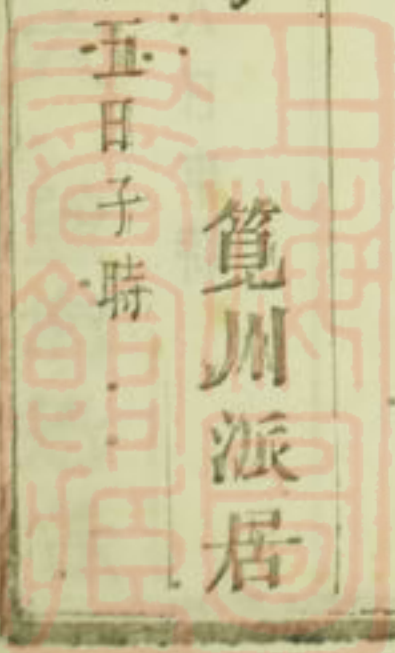 筧川派居
五日子時